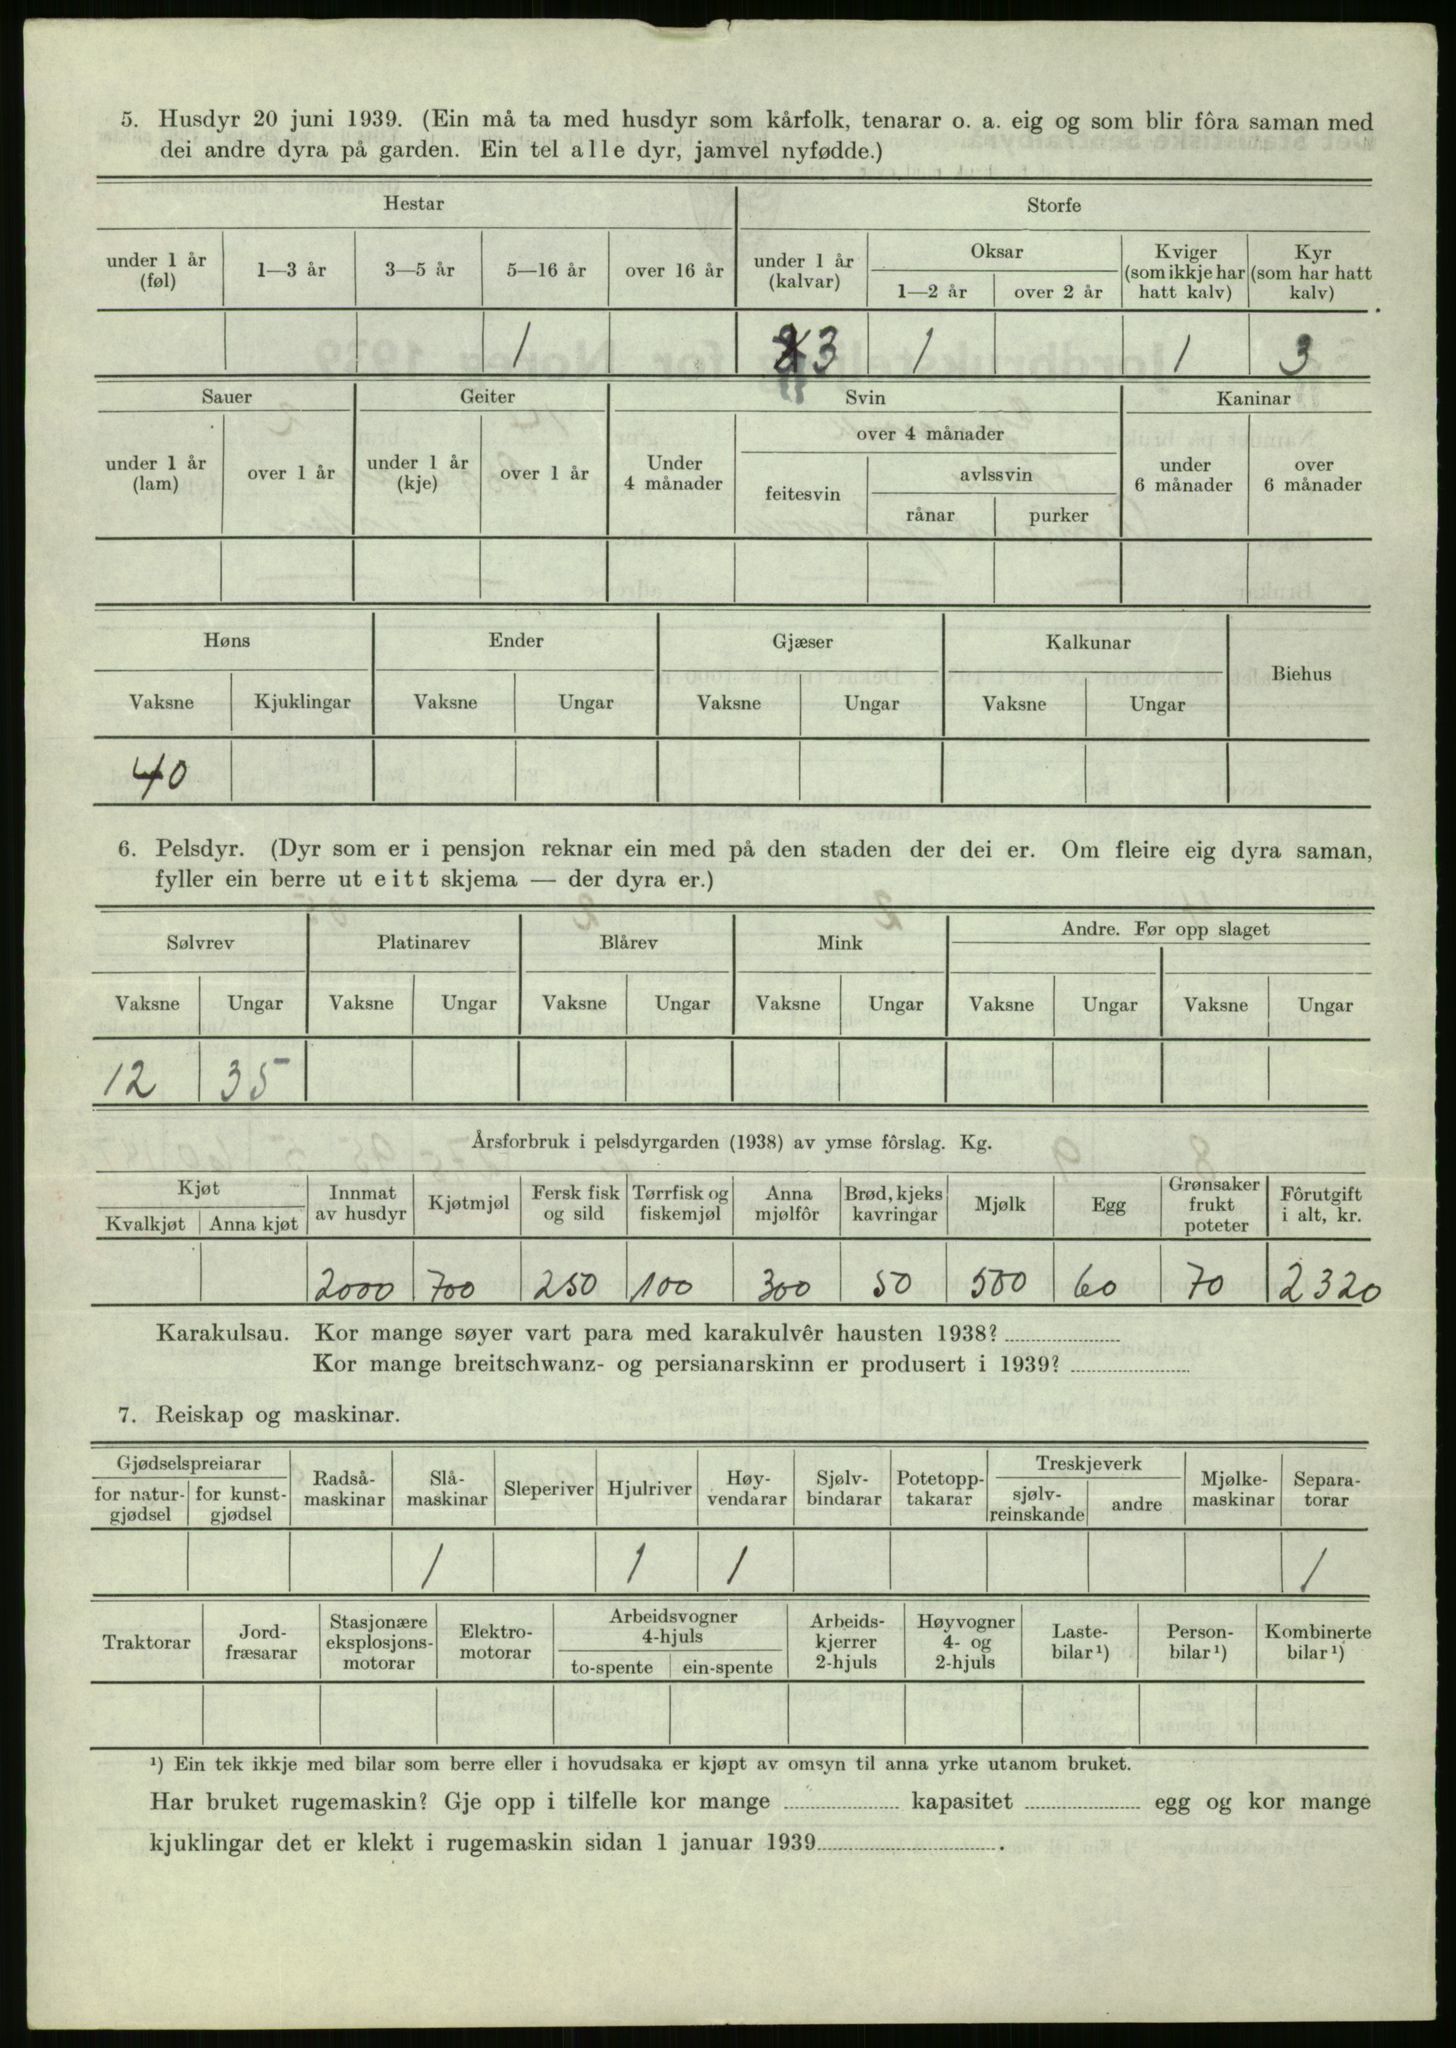 5. Husdyr 20 juni 1939. (Ein må ta med husdyr som kårfolk, tenarar o. a. eig og som blir fôra saman med
dei andre dyra på garden. Ein tel alle dyr, jamvel nyfødde.)
Hestar Storfe
under 1 år (føl) 1—3 år 3—5 år 5—16 år over 16 år under 1 år (kalvar) Oksar 1—2 år over 2 år Kviger (som ikkje har hatt kalv) Kyr (som har hatt kalv)
1 3 1 1 3
Sauer Geiter Svin Kaninar
under 1 år (lam) over 1 år under 1 år (kje) over 1 år Under 4 månader over 4 månader feitesvin avlssvin rånar purker under 6 månader over 6 månader
Høns Ender Gjæser Kalkunar Biehus
Vaksne Kjuklingar Vaksne Ungar Vaksne Ungar Vaksne Ungar
40
6. Pelsdyr. (Dyr som er i pensjon reknar ein med på den staden der dei er. Om fleire eig dyra saman,
fyller ein berre ut eitt skjema — der dyra er.)
Sølvrev Platinarev Blårev Mink Andre. Før opp slaget
Vaksne Ungar Vaksne Ungar Vaksne Ungar Vaksne Ungar Vaksne Ungar Vaksne Ungar
12 35
Årsforbruk i pelsdyrgarden (1938) av ymse fôrslag. Kg.
Kjøt Kvalkjøt Anna kjøt Innmat av husdyr Kjøtmjøl Fersk fisk og sild Tørrfisk og fiskemjøl Anna mjølfôr Brød, kjeks kavringar Mjølk Egg Grønsaker frukt poteter Fôrutgift i alt, kr.
2000 700 250 100 300 50 500 60 70 2320
Karakulsau. Kor mange søyer vart para med karakulvêr hausten 1938?
Kor mange breitschwanz- og persianarskinn er produsert i 1939?
7. Reiskap og maskinar.
Gjødselspreiarar for natur-gjødsel for kunst-gjødsel Radså-maskinar Slå-maskinar Sleperiver Hjulriver Høy-vendarar Sjølv-bindarar Potetopp-takarar Treskjeverk sjølv-reinskande andre Mjølke-maskinar Separa-torar
1 1 1 1
Traktorar Jord-fræsarar Stasjonære eksplosjons-motorar Elektro-motorar Arbeidsvogner 4-hjuls to-spente ein-spente Arbeids-kjerrer 2-hjuls Høyvogner 4- og 2-hjuls Laste-bilar¹) Person-bilar¹) Kombinerte bilar¹)
¹) Ein tek ikkje med bilar som berre eller i hovudsaka er kjøpt av omsyn til anna yrke utanom bruket.
Har bruket rugemaskin? Gje opp i tilfelle kor mange kapasitet egg og kor mange
kjuklingar det er klekt i rugemaskin sidan 1 januar 1939 .